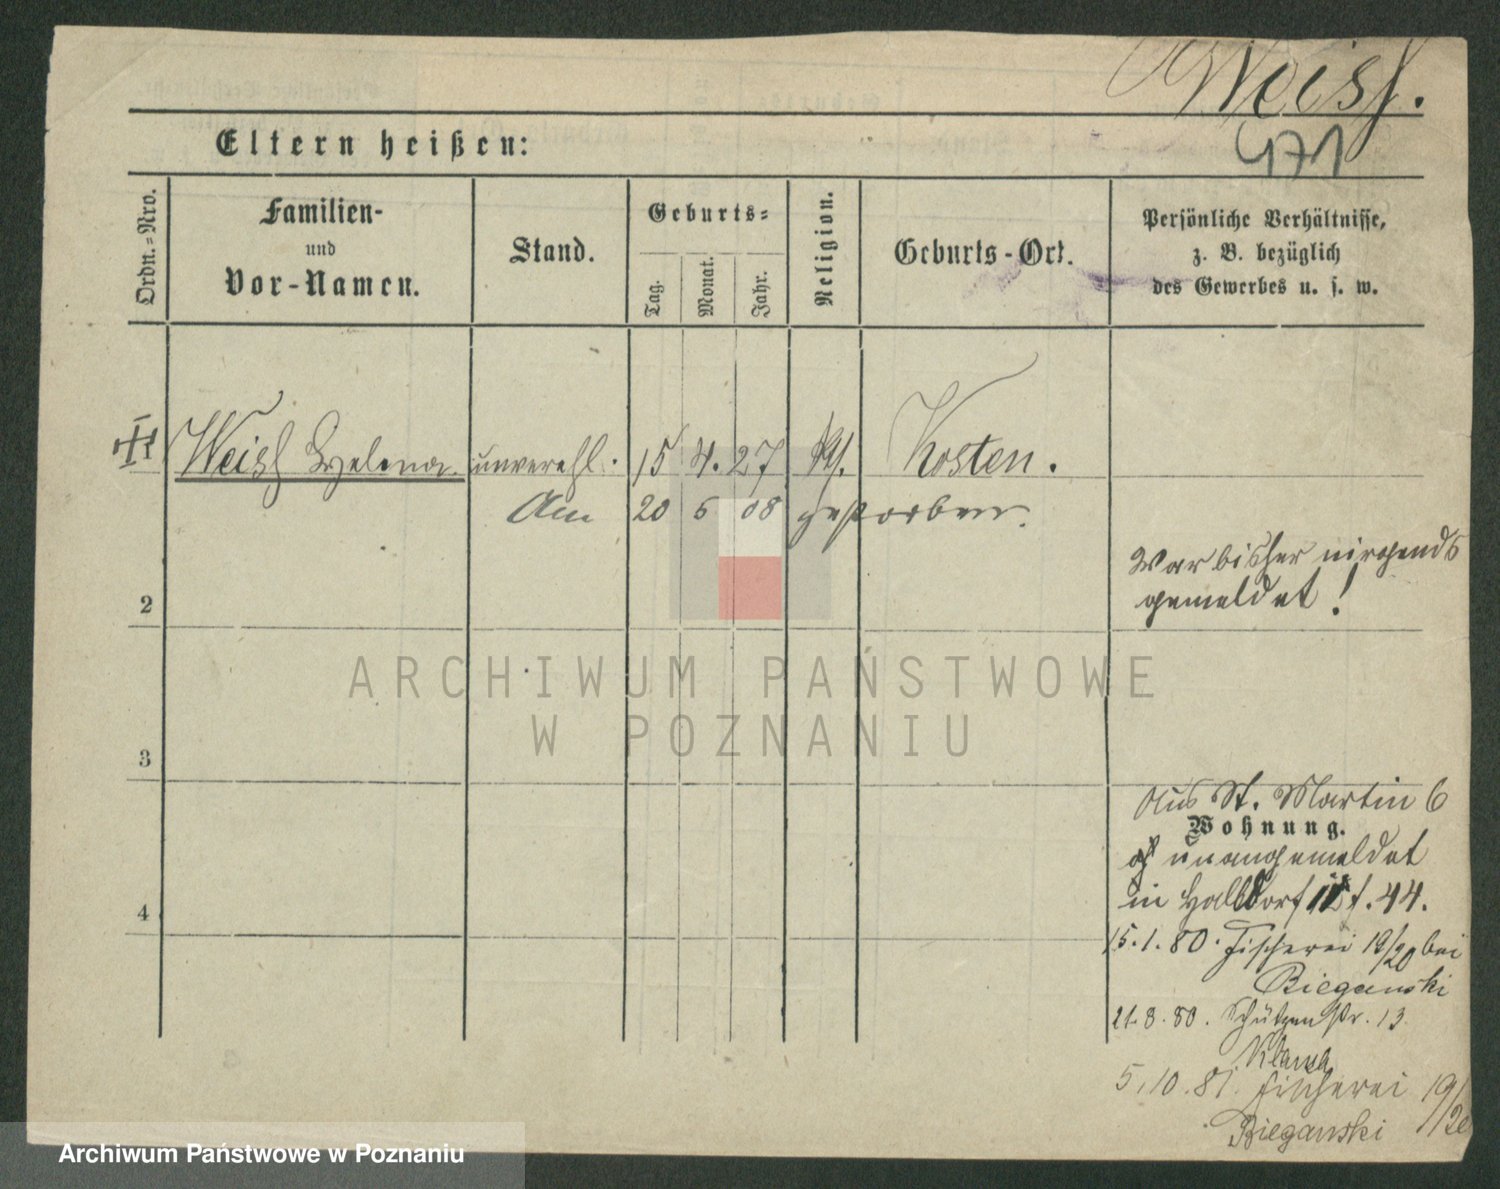 Weiss.
471
Eltern heißen:
Ordn.=Nro.
Familien-
und
Vor-Namen.
Stand.
Geburts=
Tag.
Monat.
Jahr.
Religion.
Geburts-Ort.
Persönliche Verhältnisse,
z. B. bezüglich
des Gewerbes u. s. w.
Weiss Helena. unverehl. 15 4. 27 Kosten.
Am 20 6 08 gestorben.
War bisher nirgends
gemeldet!
2
3
4
ARCHIWUM PAŃSTWOWE
W POZNANIU
Aus St. Martin 6
Wohnung.
unangemeldet
in Halbdorfstr. 44.
15.1.80. Fischerei 19/20 bei
Bieganski
21.8.80. Schützenstr. 13.
5.10.81. Fischerei 19/20
Bieganski
Archiwum Państwowe w Poznaniu